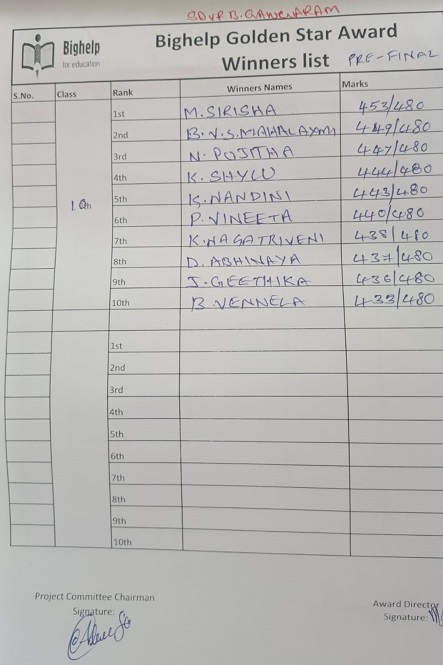 Bighelp
for education
Bighelp Golden Star Award
Winners list PRE-FINAL
S.No. Class Rank Winners Names Marks
1st M.SIRISHA 453/480
2nd B.V.S.MAHALAXMI 449/480
3rd N.POJITHA 447/480
4th K.SHYLU 444/480
10th
5th K.NANDINI 443/480
6th P.VINEETA 440/480
7th K.NAGATRIVENI 438/480
8th D.ABHINAYA 437/480
9th J.GEETHIKA 436/480
10th B.VENNELA 433/480
1st
2nd
3rd
4th
5th
6th
7th
8th
9th
10th
Project Committee Chairman
Signature:
Award Director
Signature: